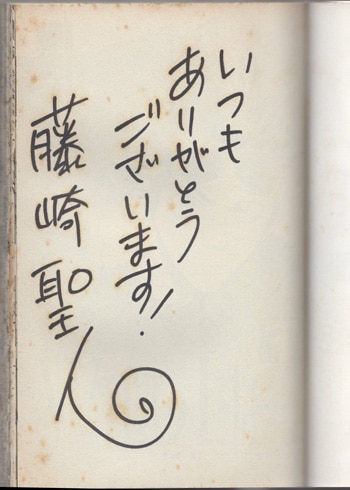 いつも
ありがとう
ございます!
藤崎聖人